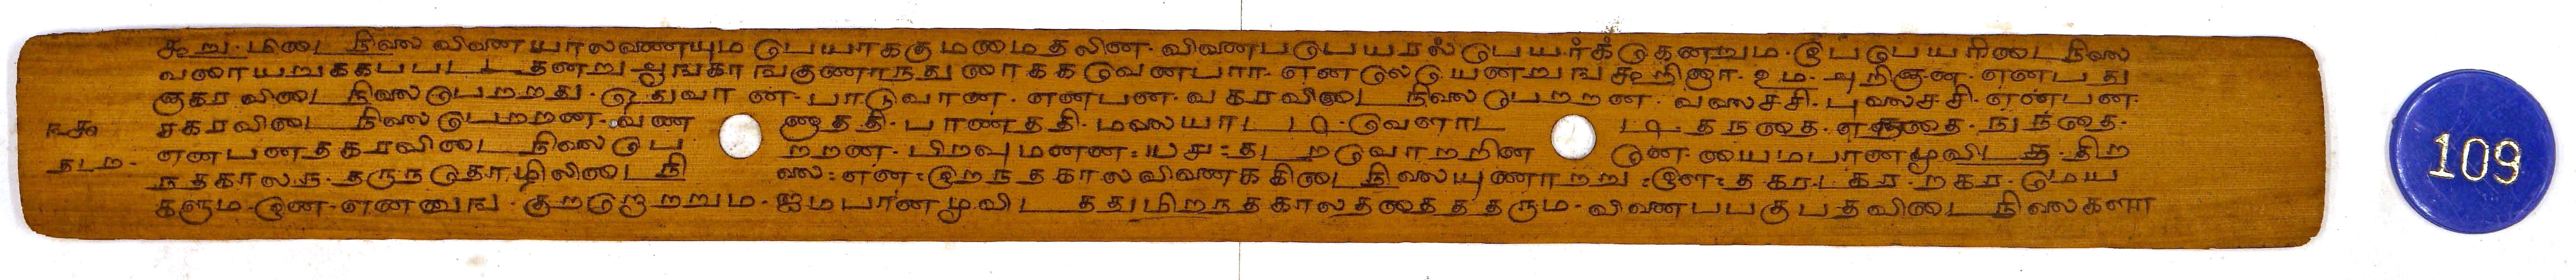 கூறு. மிடை நிலை வினையாலணையும பெயாககுமமைதலின. வினைபபெயரல் பெயர்க்கெனறும. பெயரிடை நிலை
வரையறுககபபடடதனறு ஆஙகாஙகுணாநது ளாககவெனபார. கூறினா. உ ம. அறிஞன. எனபது
ஞகர விடை நிலை பெறறது. ஓதுவான. பாடுவான. எனபன. வகரவிடை நிலை பெறறன. வலைச்சி. புலைச்சி. எனபன.
சகரவிடை நிலை பெறறன. வண ணாததி. பாணததி. மலையாடடி. வெளாட டி. தநதை. எநதை. நுநதை.
எனபன தகரவிடை நிலை பெ றறன. பிறவுமனன: தடறவொறறின னே. யைமபானமூவிடத. திற
தடற.
நதகாலந. தருநதொழிலிடை நி லை: என: இறநதகாலவினைககிடை நிலையுணாறறு: தகர. டகர. றகர. மெய
களும. இன. எனனுங. குறறொறறும. ஐமபானமூவிடததுமிறநதகாலததைததரும. வினைபபகுபதவிடை நிலைகளா
109